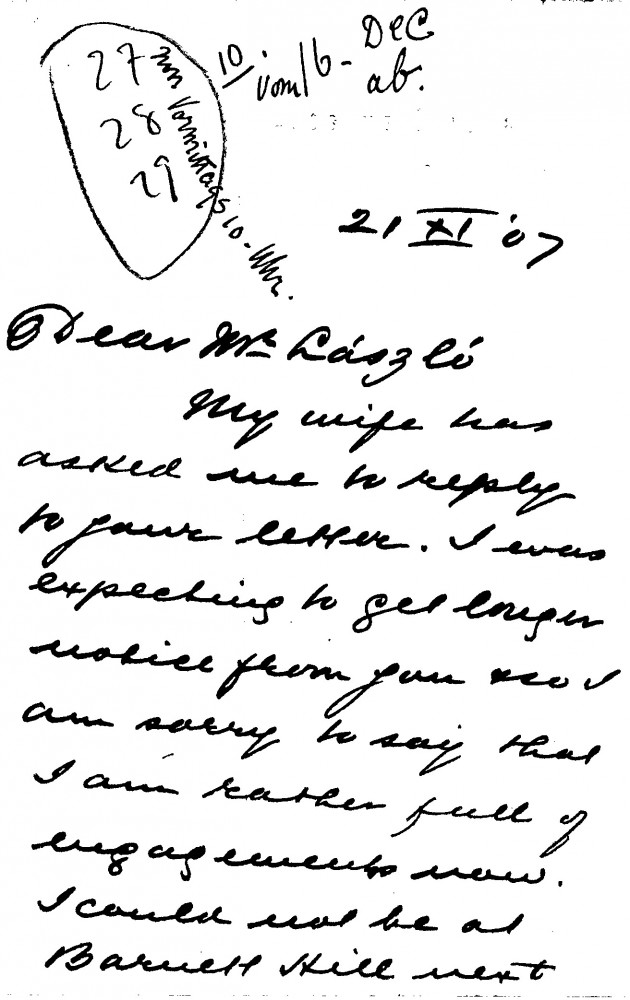 27
28
29
Vormittags 10 Uhr.
10
vom 16 - Dec
ab.
21 XI '07
Dear Mr László
My wife has
asked me to reply
to your letter. I was
expecting to get longer
notice from you & so I
am sorry to say that
I am rather full of
engagements now.
I could not be at
Barnett Hill next